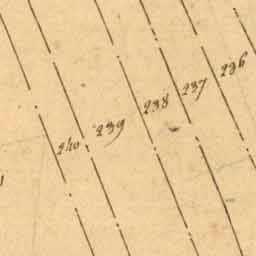 240 239 238 237 236